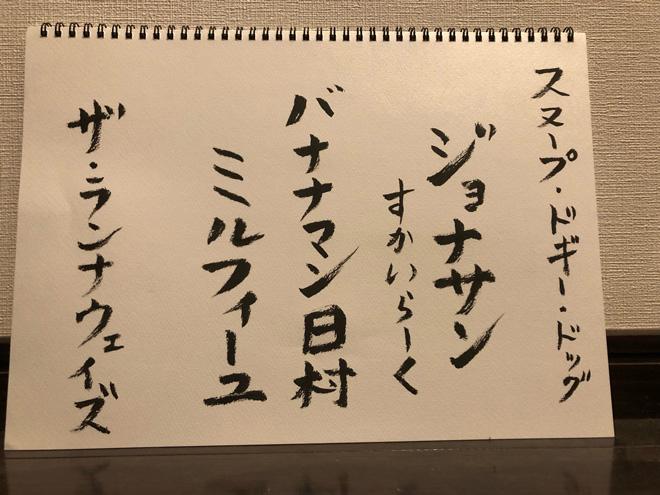 スヌープ・ドギー・ドッグ
ジョナサン
すかいらーく
バナナマン日村
ミルフィーユ
ザ・ランナウェイズ